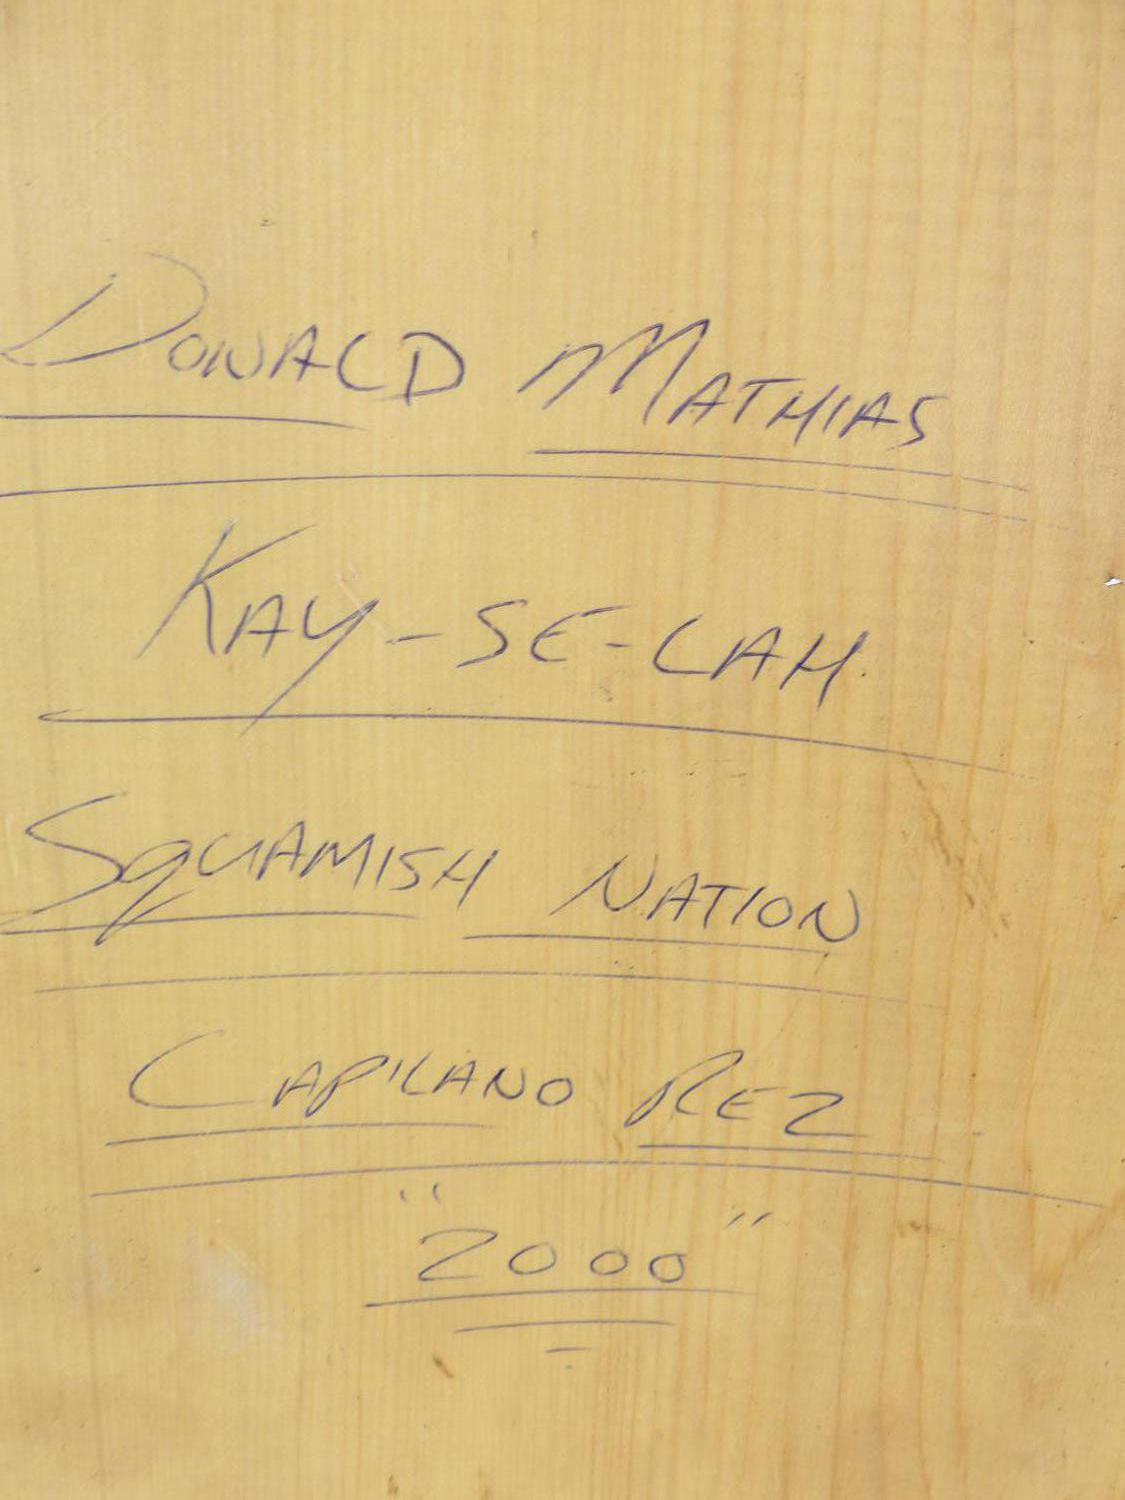 DONALD MATHIAS
KAY-SE-LAH.
SQUAMISH NATION
CAPILANO REZ
"2000"